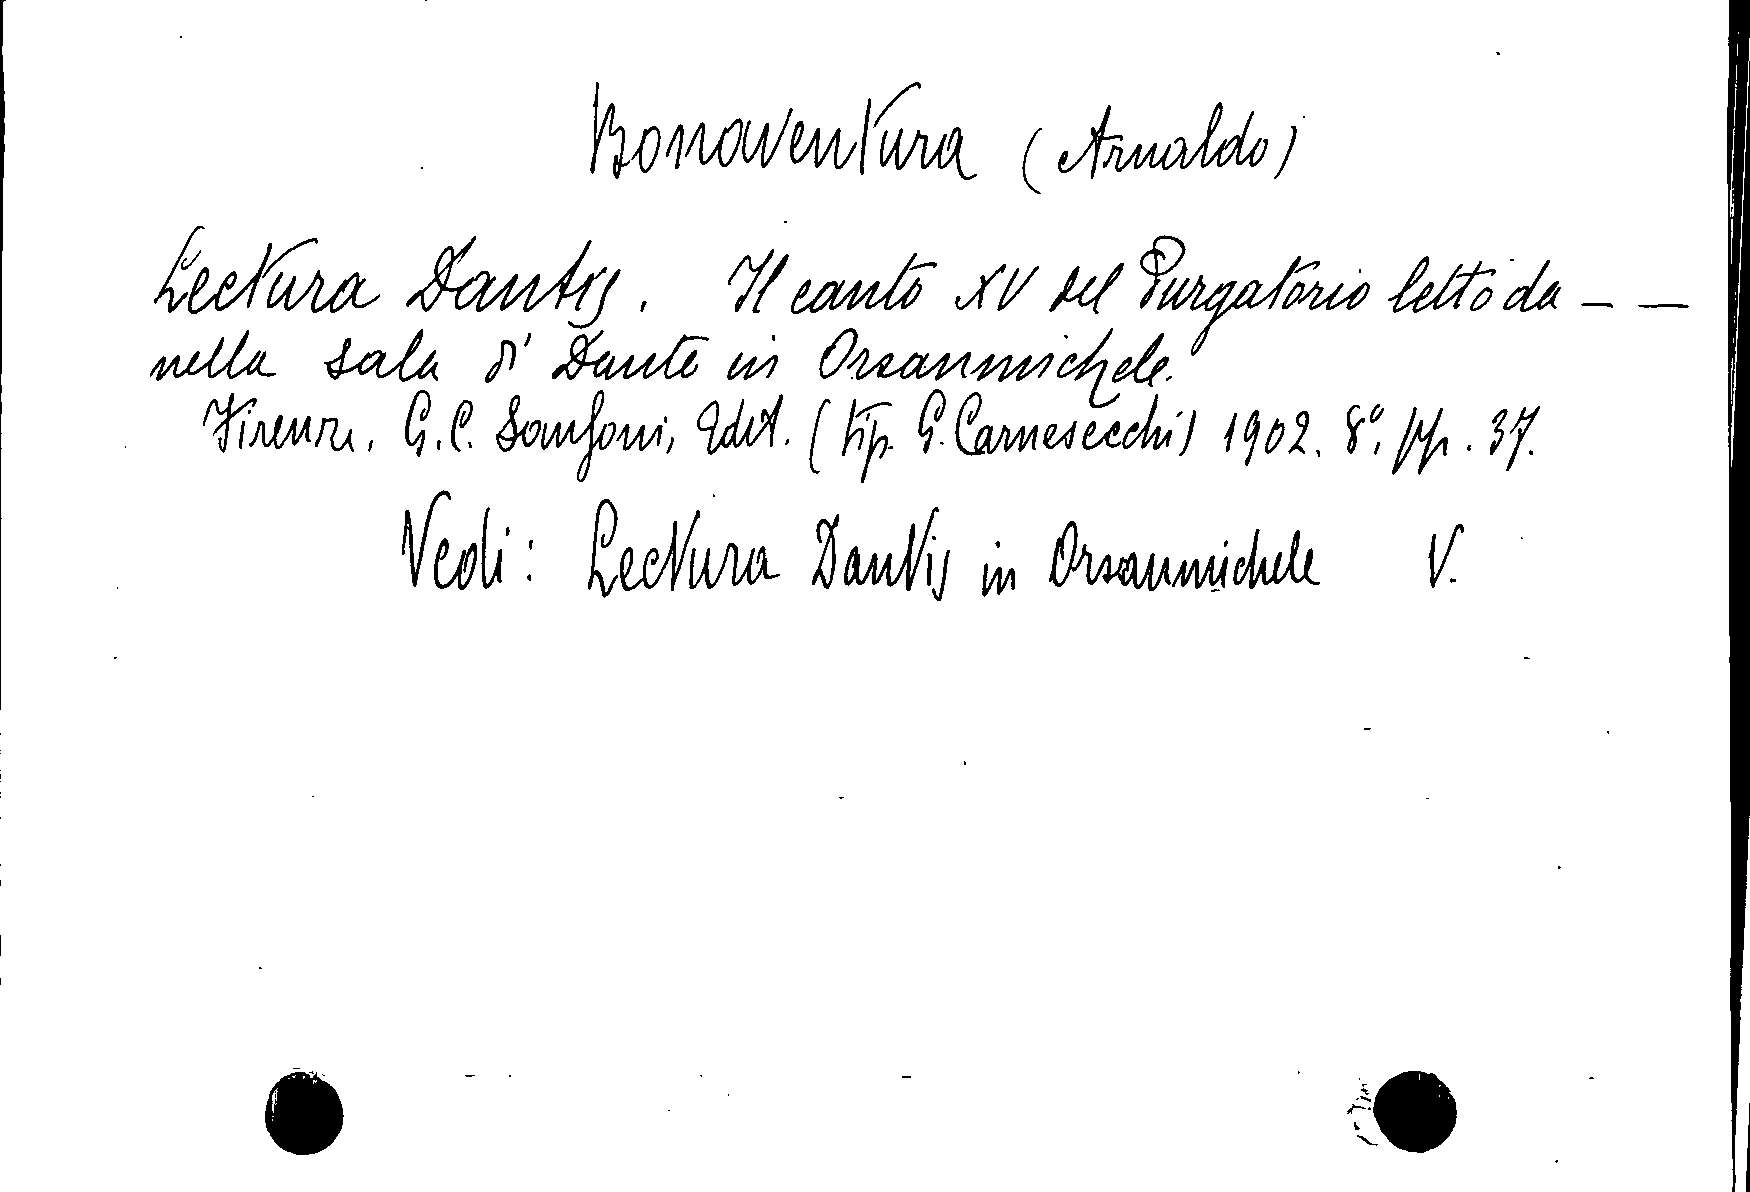 Bonaventura (Arnaldo)
Lectura Dantis. Il canto XV del Purgatorio letto da – –
nella sala d' Dante in Orsanmichele.
Firenze, G. C. Sansoni, Edit. (tip. G. Carnesecchi) 1902. 8º. pp. 37.
Vedi: Lectura Dantis in Orsanmichele V.